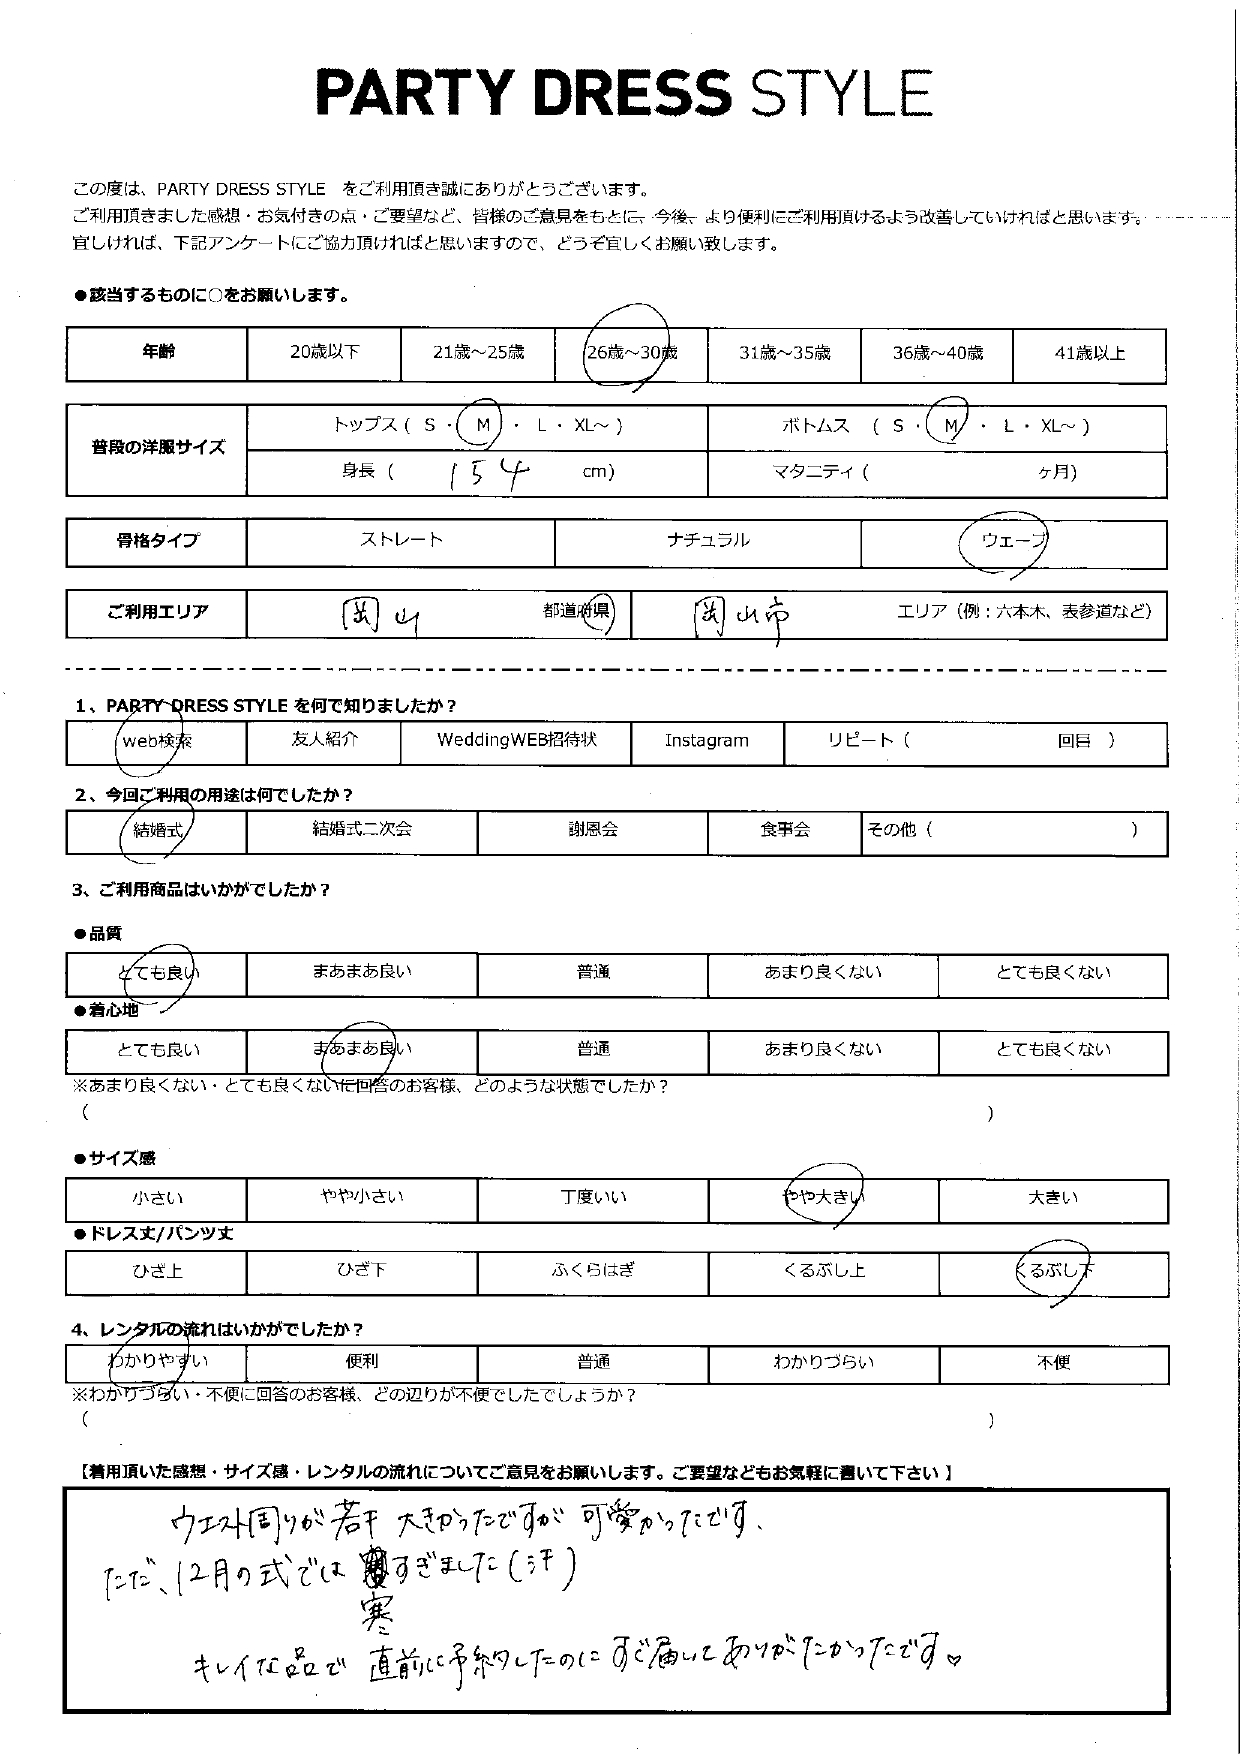 PARTY DRESS STYLE
この度は、PARTY DRESS STYLE をご利用頂き誠にありがとうございます。
ご利用頂きました感想・お気付きの点・ご要望など、皆様のご意見をもとに、今後、より便利にご利用頂けるよう改善していければと思います。
宜しければ、下記アンケートにご協力頂ければと思いますので、どうぞ宜しくお願い致します。
●該当するものに○をお願いします。
年齢 20歳以下 21歳～25歳 26歳～30歳 31歳～35歳 36歳～40歳 41歳以上
普段の洋服サイズ トップス ( S ・ M ・ L ・ XL～ ) ボトムス ( S ・ M ・ L ・ XL～ )
身長 ( 154 cm) マタニティ ( ヶ月)
骨格タイプ ストレート ナチュラル ウェーブ
ご利用エリア 岡山 都道府県 岡山市 エリア（例：六本木、表参道など）
1、PARTY DRESS STYLE を何で知りましたか？
web検索 友人紹介 WeddingWEB招待状 Instagram リピート ( 回目 )
2、今回ご利用の用途は何でしたか？
結婚式 結婚式二次会 謝恩会 食事会 その他 ( )
3、ご利用商品はいかがでしたか？
●品質
とても良い まあまあ良い 普通 あまり良くない とても良くない
●着心地
とても良い まあまあ良い 普通 あまり良くない とても良くない
※あまり良くない・とても良くないに回答のお客様、どのような状態でしたか？
( )
●サイズ感
小さい やや小さい 丁度いい やや大きい 大きい
●ドレス丈/パンツ丈
ひざ上 ひざ下 ふくらはぎ くるぶし上 くるぶし下
4、レンタルの流れはいかがでしたか？
わかりやすい 便利 普通 わかりづらい 不便
※わかりづらい・不便に回答のお客様、どの辺りが不便でしたでしょうか？
( )
【着用頂いた感想・サイズ感・レンタルの流れについてご意見をお願いします。ご要望などもお気軽に書いて下さい】
ウエスト周りが若干大きかったですが可愛かったです、
ただ、12月の式では すぎました(汗)
寒
キレイな品で直前に予約したのにすぐ届いてありがたかったです♡